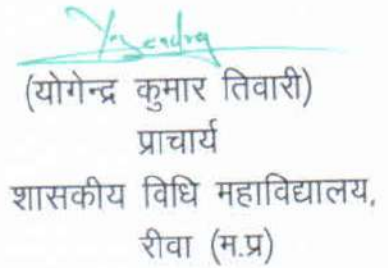 Yogendra
(योगेन्द्र कुमार तिवारी)
प्राचार्य
शासकीय विधि महाविद्यालय,
रीवा (म.प्र)